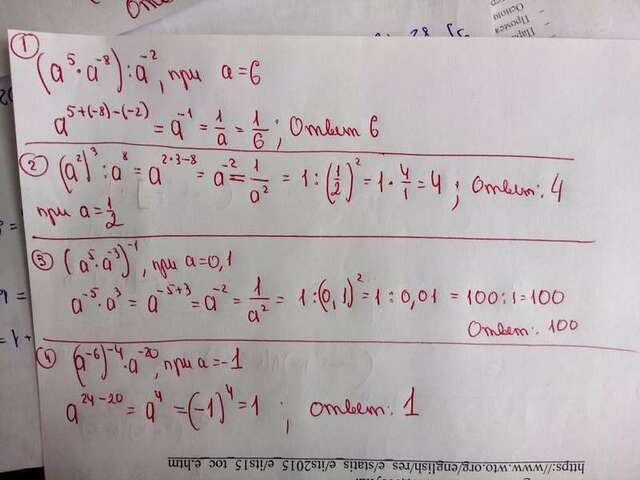 ① (a⁵·a⁻⁸):a⁻², при a=6
a⁵⁺⁽⁻⁸⁾⁻⁽⁻²⁾ = a⁻¹ = 1/a = 1/6; Ответ 6
② (a²)³:a⁸ = a²·³⁻⁸ = a⁻² = 1/a² = 1:(1/2)² = 1·4/1 = 4; Ответ: 4
при a=1/2
③ (a⁵·a⁻³)⁻¹, при a=0,1
a⁻⁵·a³ = a⁻⁵⁺³ = a⁻² = 1/a² = 1:(0,1)² = 1:0,01 = 100:1=100
Ответ: 100
④ (a⁻⁶)⁻⁴·a⁻²⁰, при a=-1
a²⁴⁻²⁰ = a⁴ = (-1)⁴ = 1; Ответ: 1
https://www.wto.org/english/res_e/statis_e/its2015_e/its15_toc_e.htm